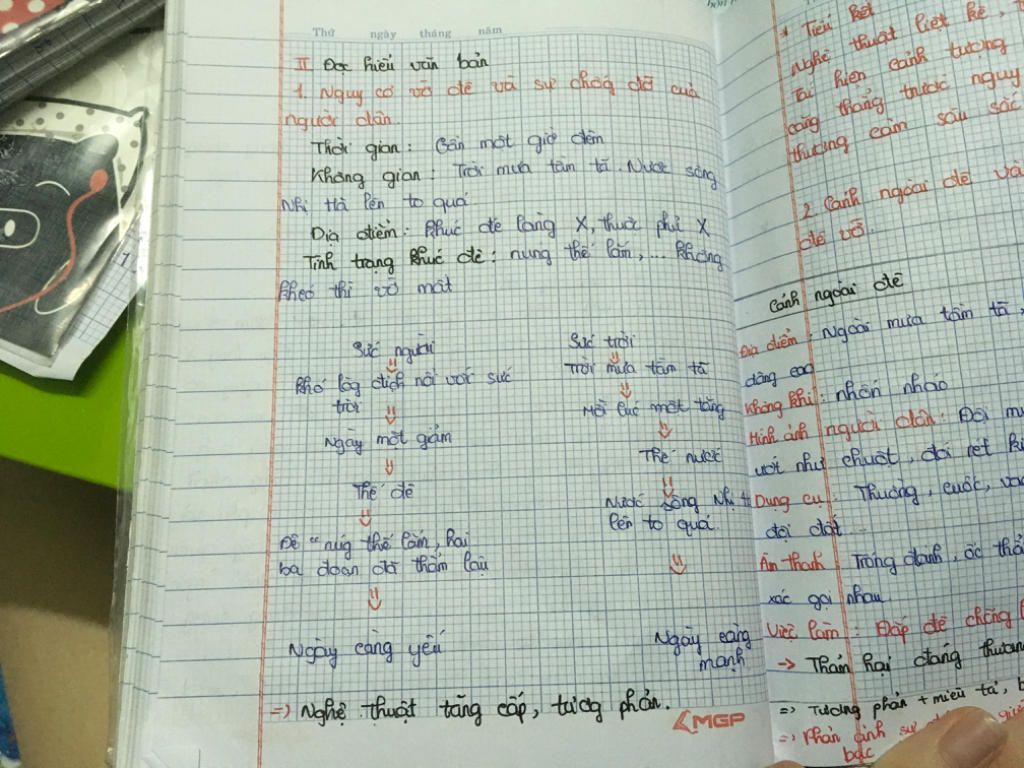 Thứ ngày tháng năm
II Đọc hiểu văn bản
1. Nguy cơ vỡ đê và sự chống đỡ của
người dân.
Thời gian: Gần một giờ đêm
Không gian: Trời mưa tầm tã. Nước sông
Nhị Hà lên to quá
Địa điểm: Khúc đê làng X, thuộc phủ X
Tình trạng khúc đê: núng thế lắm, ... không
khéo thì vỡ mất
Sức người
⇓
Khó lòng địch nổi với sức
trời
⇓
Ngày một giảm
⇓
Thế đê
⇓
Đê "núg thế lắm, hai
ba đoạn đã thẩm lậu
⇓
Ngày càng yếu
Sức trời
⇓
Trời mưa tầm tã
⇓
Mỗi lúc một tăng
⇓
Thế nước
⇓
Nước sông Nhị
lên to quá
⇓
Ngày càng
mạnh
=> Nghệ thuật tăng cấp, tương phản.
MGP
* Tiểu kết
Nghệ thuật liệt kê,
Tái hiện cảnh tượng
căng thẳng trước nguy
thương cảm sâu sắc
2. Cảnh ngoài đê và
đê vỡ.
Cảnh ngoài đê
Địa điểm: Ngoài mưa tầm tã,
dâng cao
Không khí: nhốn nháo
Hình ảnh người dân: Đội
ướt như chuột, đói rét
Dụng cụ: Thuổng, cuốc,
đội đất
Âm thanh Trống đánh, ốc
xác gọi nhau
Việc làm: Đắp đê chống
-> Thảm hại đáng thương
=> Tương phản + miêu tả,
=> Phản ánh